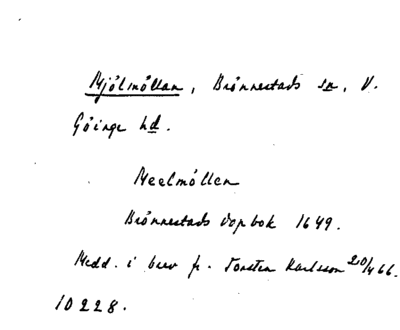 Mjölmöllan, Brönnestads sn, V.
Göinge hd.
Meelmöllen
Brönnestads dopbok 1649.
Medd. i brev fr. Torsten Karlsson 20/4 66.
10228.